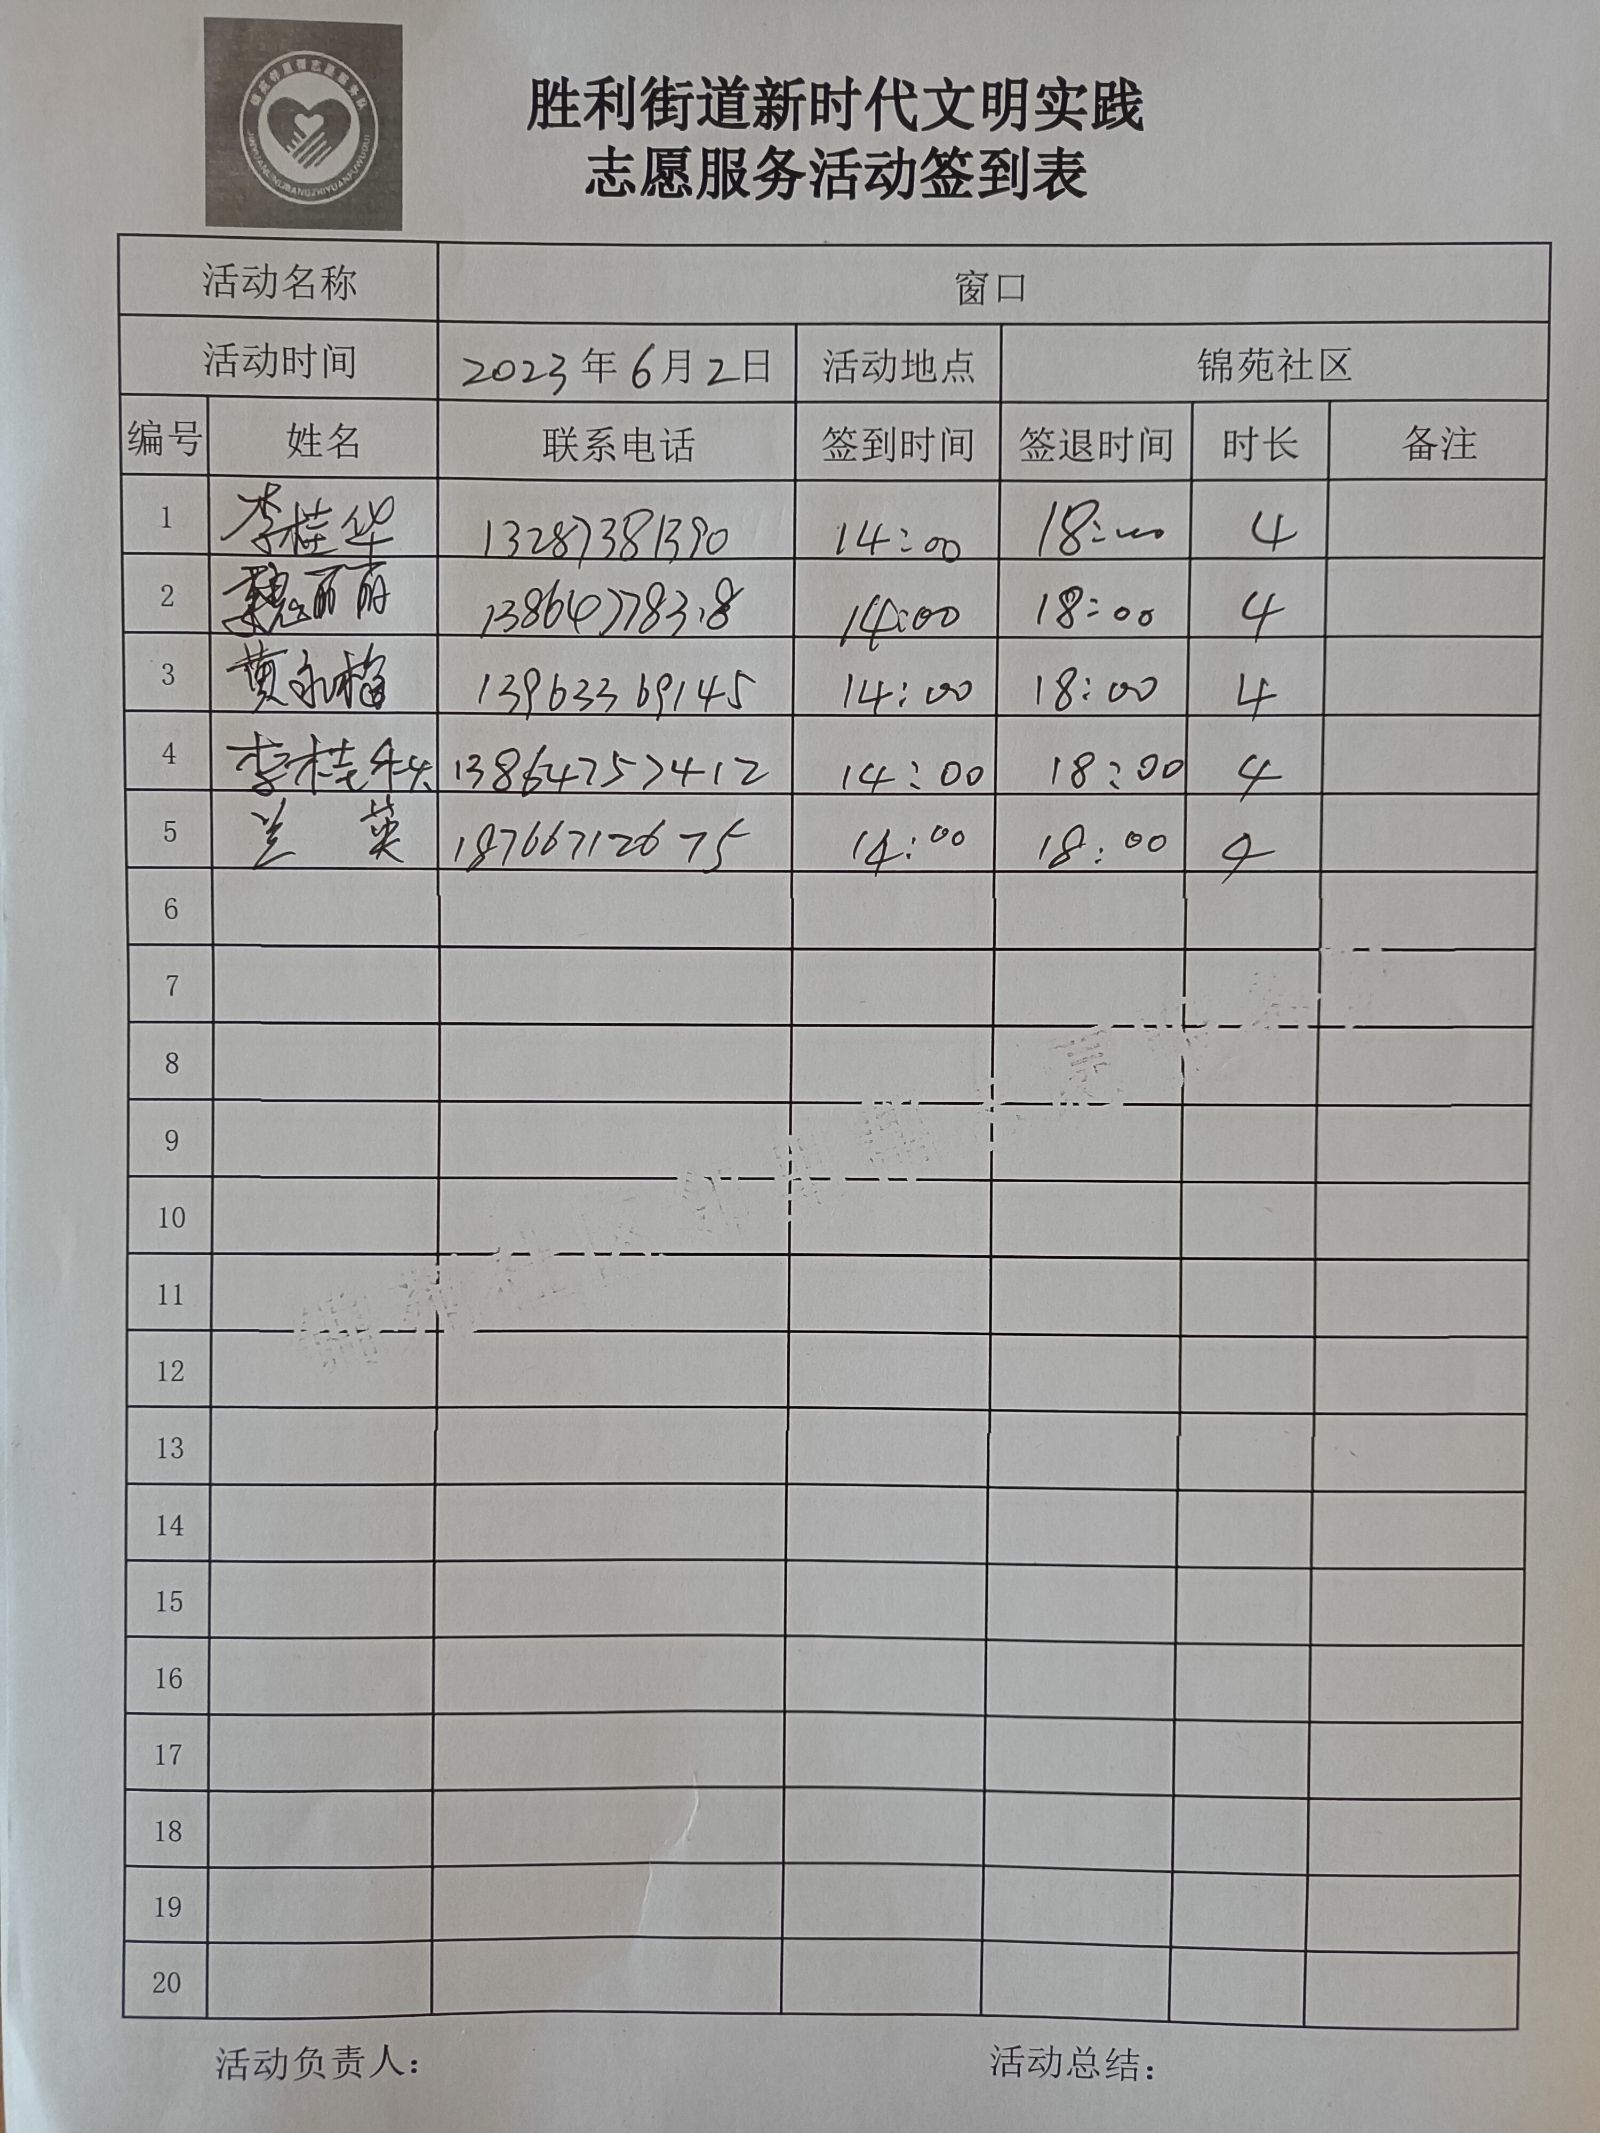 锦苑邻里帮志愿服务队
JINYUANLINLIBANGZHIYUANFUWUDUI
胜利街道新时代文明实践
志愿服务活动签到表
活动名称 窗口
活动时间 2023年6月2日 活动地点 锦苑社区
编号 姓名 联系电话 签到时间 签退时间 时长 备注
1 李桂华 13287381390 14:00 18:00 4
2 魏丽丽 14:00 18:00 4
3 黄永梅 13963369145 14:00 18:00 4
4 李桂 13864757412 14:00 18:00 4
5 兰英 18766712675 14:00 18:00 4
6
7
8
9
10
11
12
13
14
15
16
17
18
19
20
活动负责人： 活动总结：